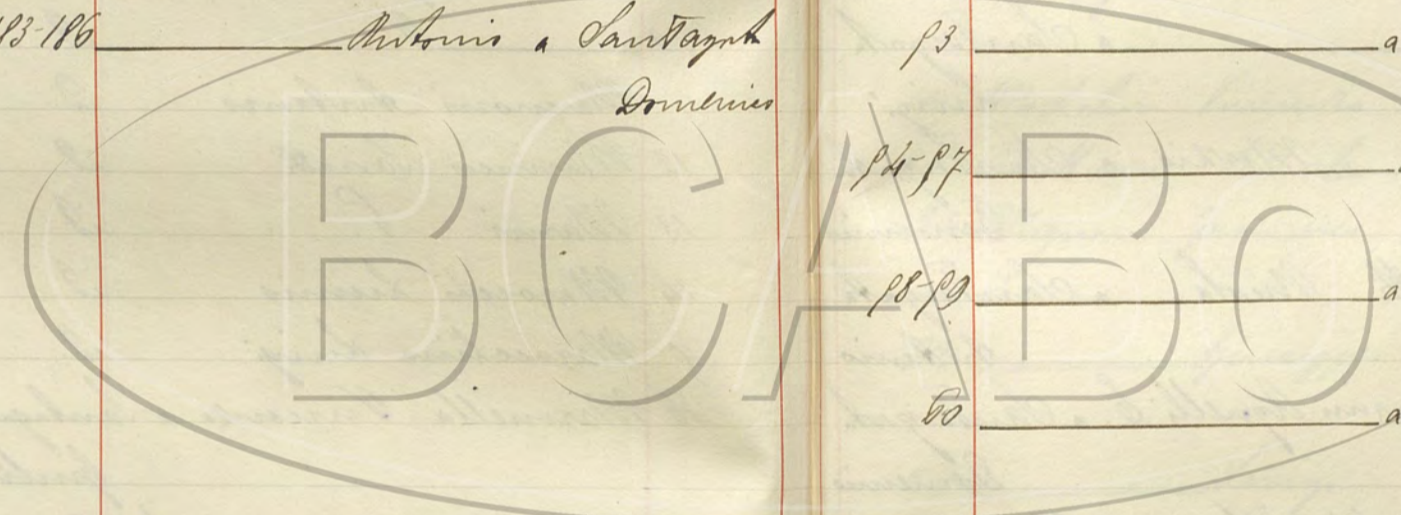 183-186 Antonio a Santagata
Domenico
53 a
54-57
58-59 a
60 a
BCABO